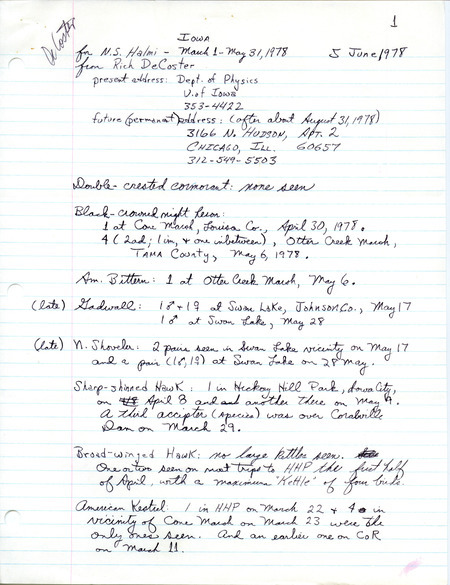 1
DeCoster
Iowa
for N.S. Halmi - March 1 - May 31, 1978 5 June 1978
from Rich DeCoster
present address: Dept. of Physics
U. of Iowa
353-4422
future (permanent) address: (after about August 31, 1978)
3166 N. Hudson, Apt. 2
Chicago, Ill. 60657
312-549-5503
Double-crested cormorant: none seen
Black-crowned night heron:
1 at Cone Marsh, Louisa Co., April 30, 1978.
4 (2ad; 1 im, & one inbetween), Otter Creek Marsh,
Tama County, May 6, 1978.
Am. Bittern: 1 at Otter Creek Marsh, May 6.
(late) Gadwall: 1♂+1♀ at Swan Lake, Johnson Co., May 17
1♂ at Swan Lake, May 28
(late) N. Shoveler: 2 pairs seen in Swan Lake vicinity on May 17
and a pair (1♂,1♀) at Swan Lake on 28 May.
Sharp-shinned Hawk: 1 in Hickory Hill Park, Iowa City,
on April 8 and another there on May 9.
A third accipter (species) was over Coralville
Dam on March 29.
Broad-winged Hawk: no large kettles seen.
One or two seen on most trips to HHP the first half
of April, with a maximum "Kettle" of four birds.
American Kestrel: 1 in HHP on March 22 & 4 in
vicinity of Cone Marsh on March 23 were the
only ones seen. And an earlier one on CoR
on March 11.